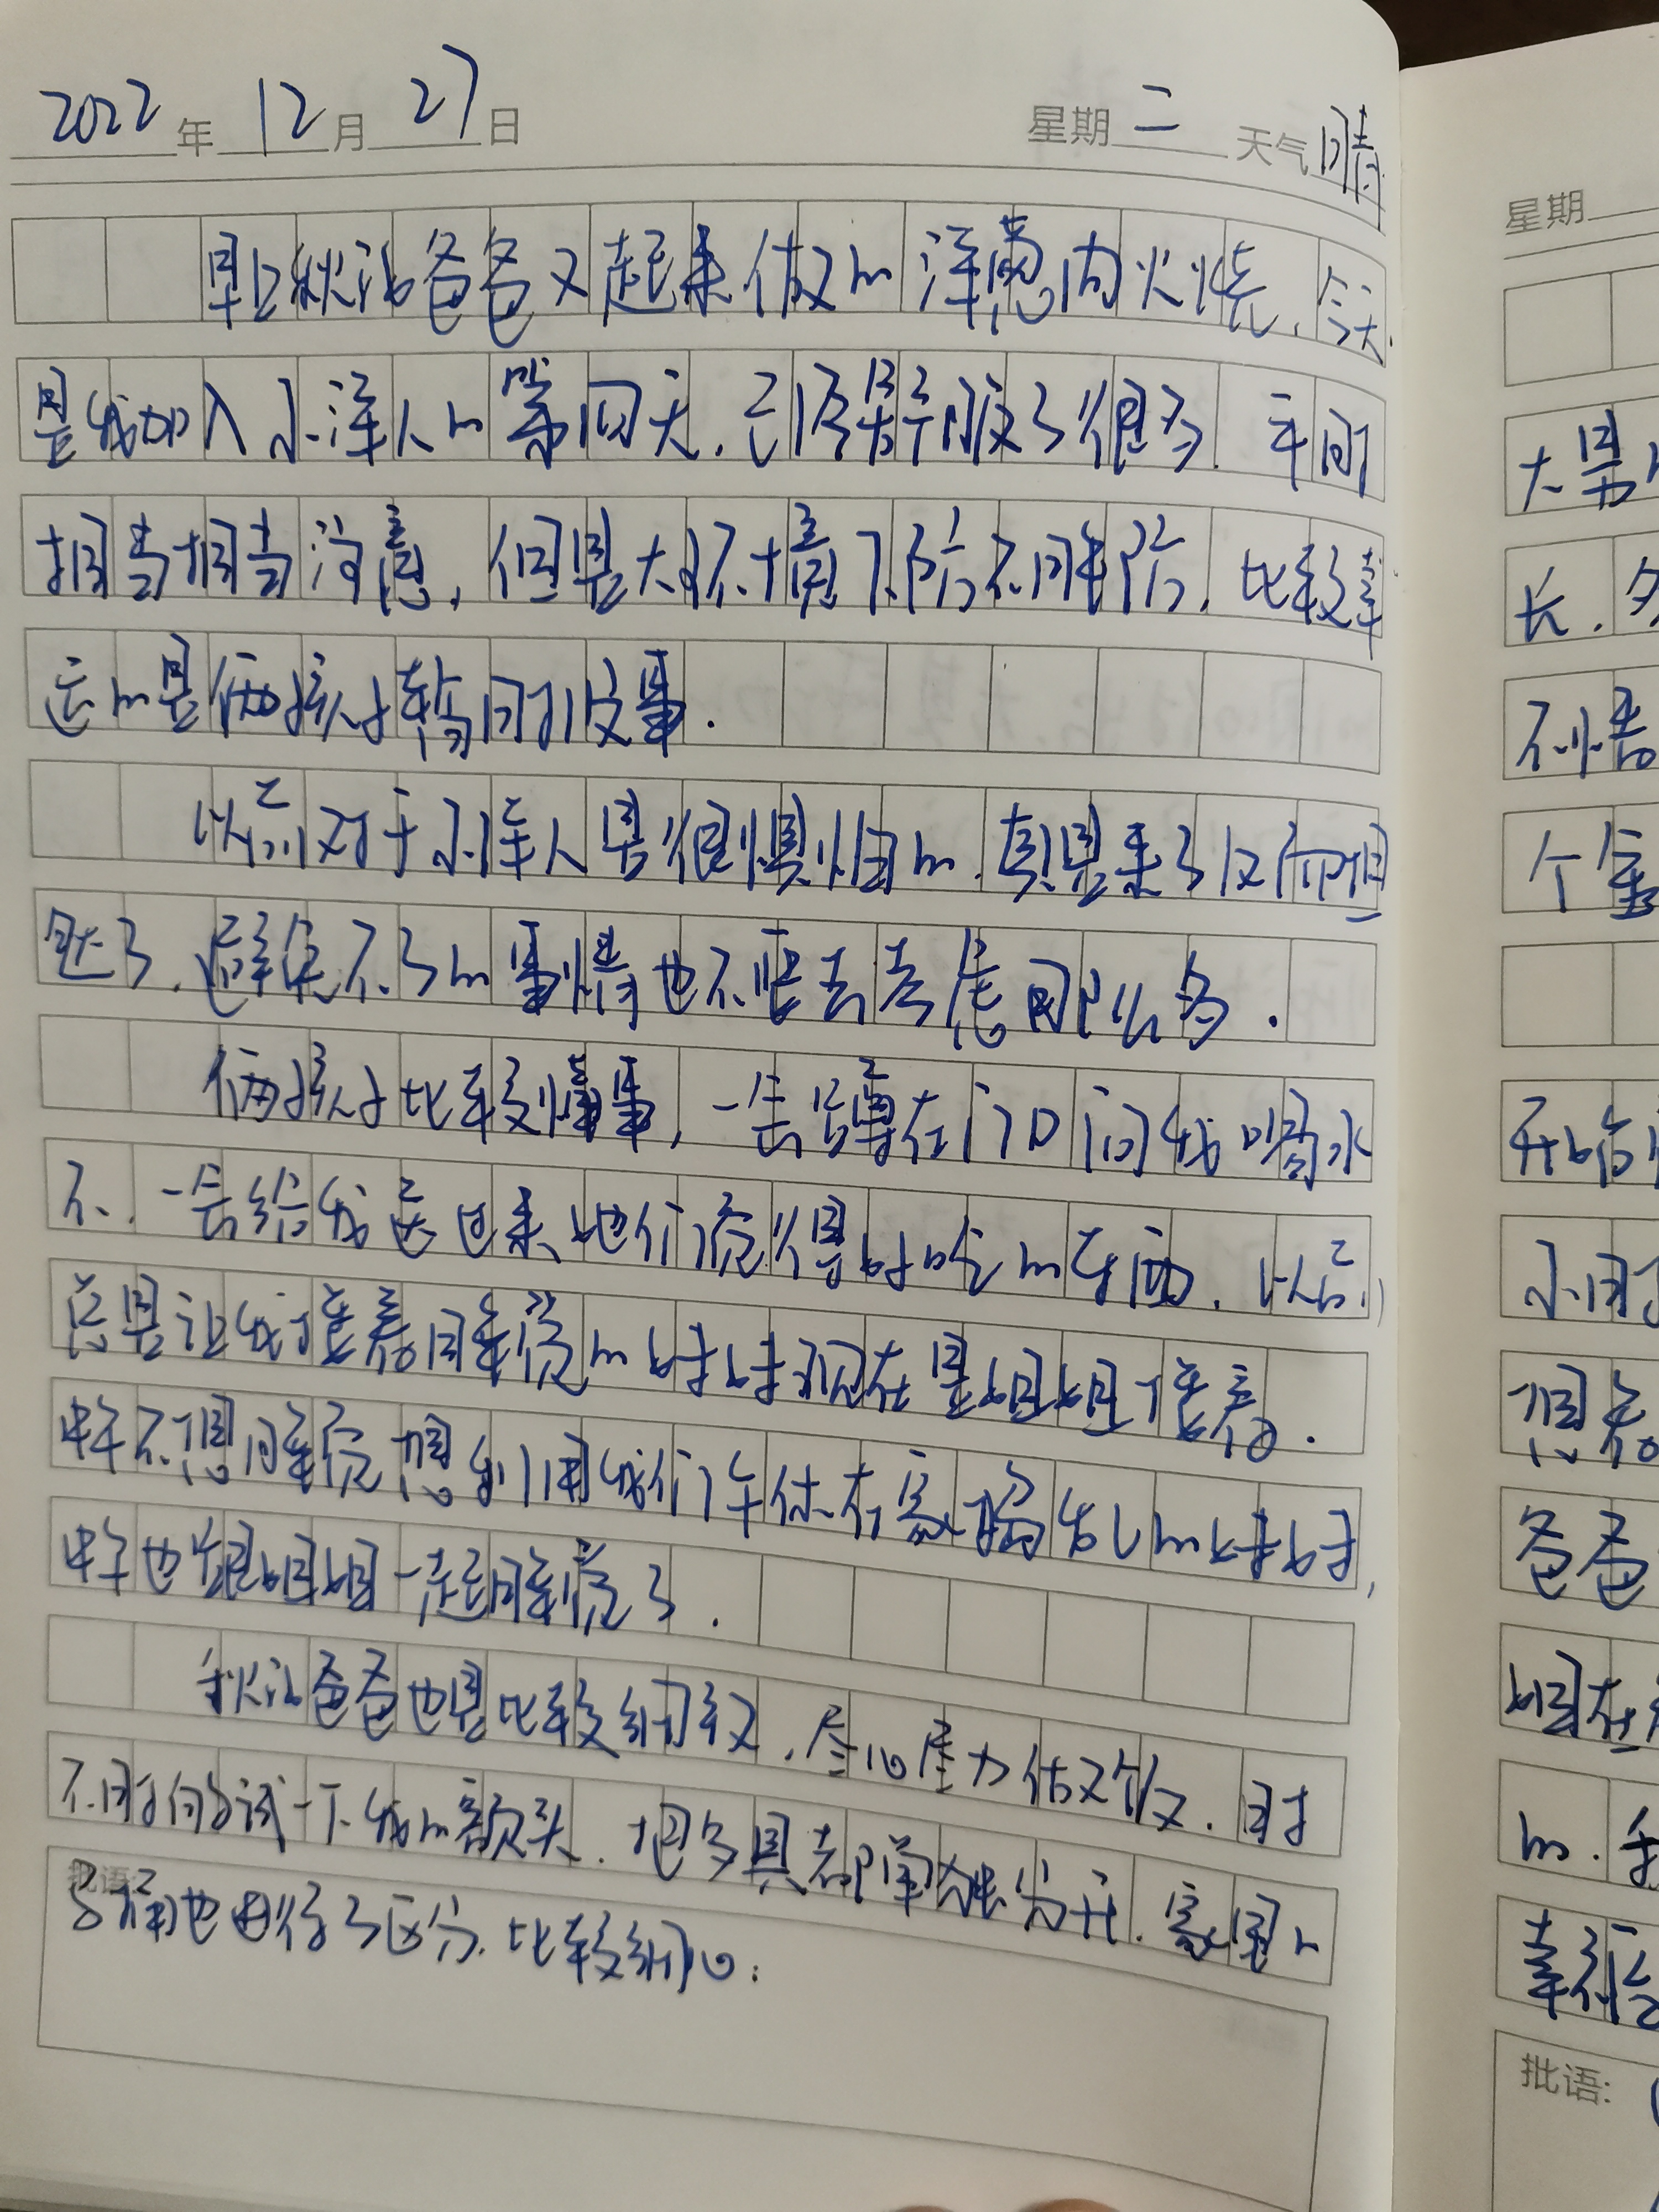 2022年12月27日 星期二 天气晴
早上秋江爸爸又起来做的洋葱肉火烧,今天
是我加入小洋人的第四天,已经舒服了很多.午间
相当相当注意,但是大好情不陪不同阶,比较幸
运的是俩孩子轮间打皮事.
以前对于小洋人是很惧怕的.真是来了反而坦
然了,避免不了的事情也不要去考虑那么多.
俩孩子比较懂事,一会蹲在门口问我喝水
不,一会给我送过来她们觉得好吃的东西.以前
总是让我搂着睡觉的好好现在是姐姐搂着.
中午不想睡觉想利用我们午休在家捣乱的好好,
中午也跟姐姐一起睡觉了.
秋江爸爸也是比较细致,尽心尽力做饭.时
不时伸手试一下我的额头.把餐具都单独分开.家里的
马桶也进行了区分.比较细心.
星期
大
长.
不
个
开始
小时
想着
爸爸
姐在
的.
幸福
批语: